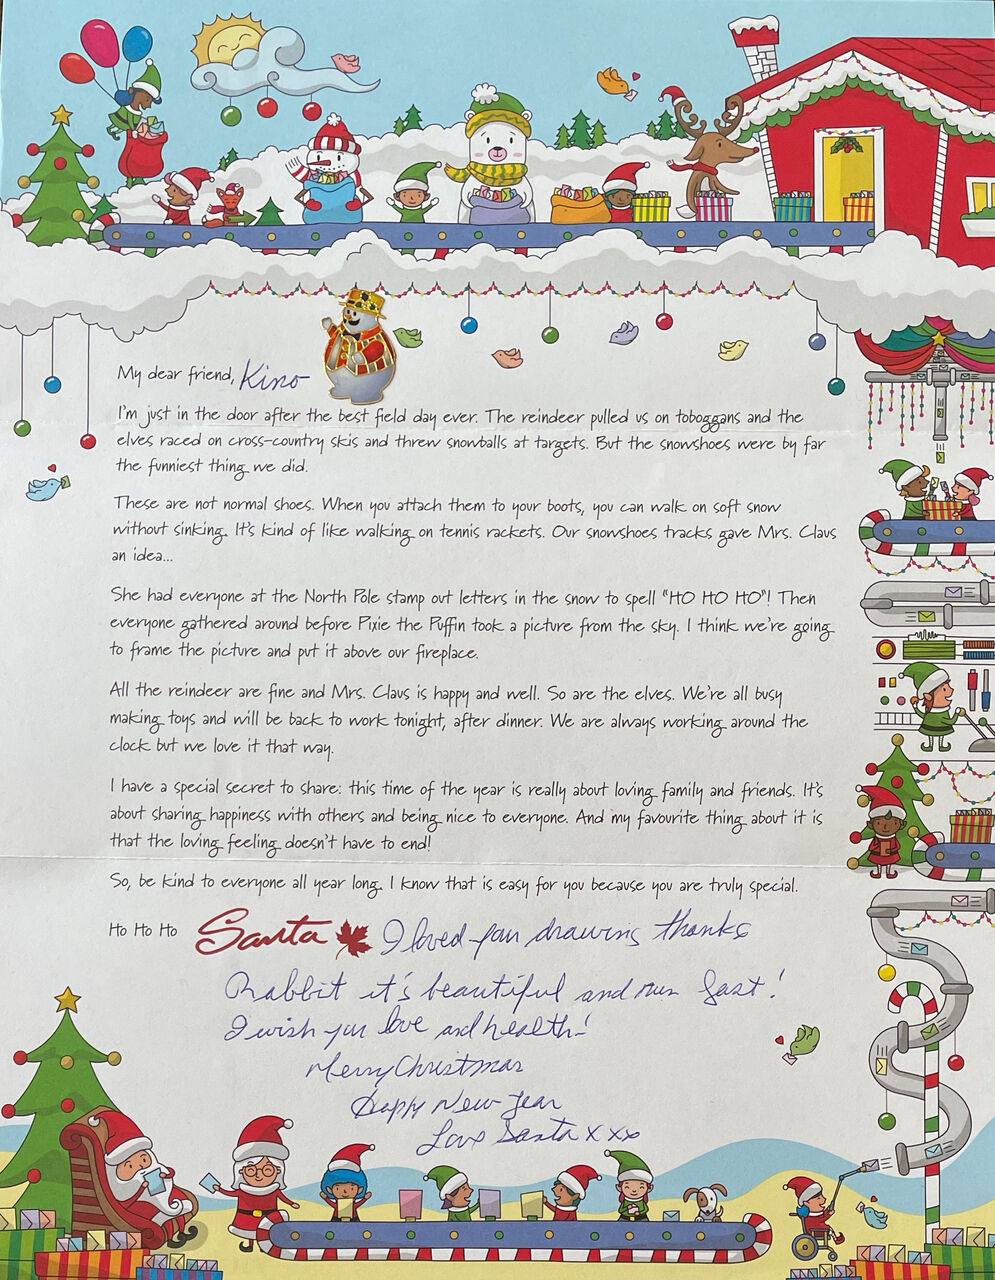 My dear friend, Kino
I'm just in the door after the best field day ever. The reindeer pulled us on toboggans and the
elves raced on cross-country skis and threw snowballs at targets. But the snowshoes were by far
the funniest thing we did.
These are not normal shoes. When you attach them to your boots, you can walk on soft snow
without sinking. It's kind of like walking on tennis rackets. Our snowshoes tracks gave Mrs. Claus
an idea...
She had everyone at the North Pole stamp out letters in the snow to spell "HO HO HO"! Then
everyone gathered around before Pixie the Puffin took a picture from the sky. I think we're going
to frame the picture and put it above our fireplace.
All the reindeer are fine and Mrs. Claus is happy and well. So are the elves. We're all busy
making toys and will be back to work tonight, after dinner. We are always working around the
clock but we love it that way.
I have a special secret to share: this time of the year is really about loving family and friends. It's
about sharing happiness with others and being nice to everyone. And my favourite thing about it is
that the loving feeling doesn't have to end!
So, be kind to everyone all year long. I know that is easy for you because you are truly special.
Ho Ho Ho Santa I loved your drawing thanks
Rabbit it's beautiful and run fast!
I wish you love and health!
Merry Christmas
Happy New Year
Love Santa xxx